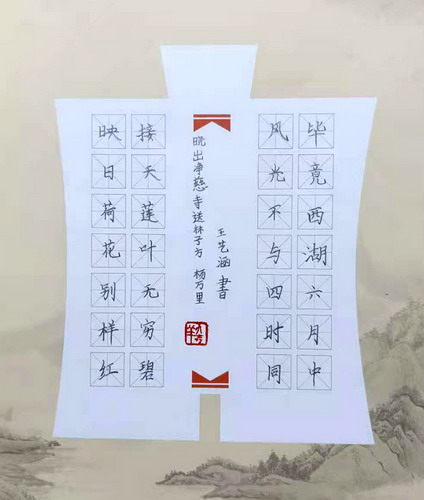 毕竟西湖六月中
风光不与四时同
王艺涵書
晓出净慈寺送林子方 杨万里
接天莲叶无穷碧
映日荷花别样红